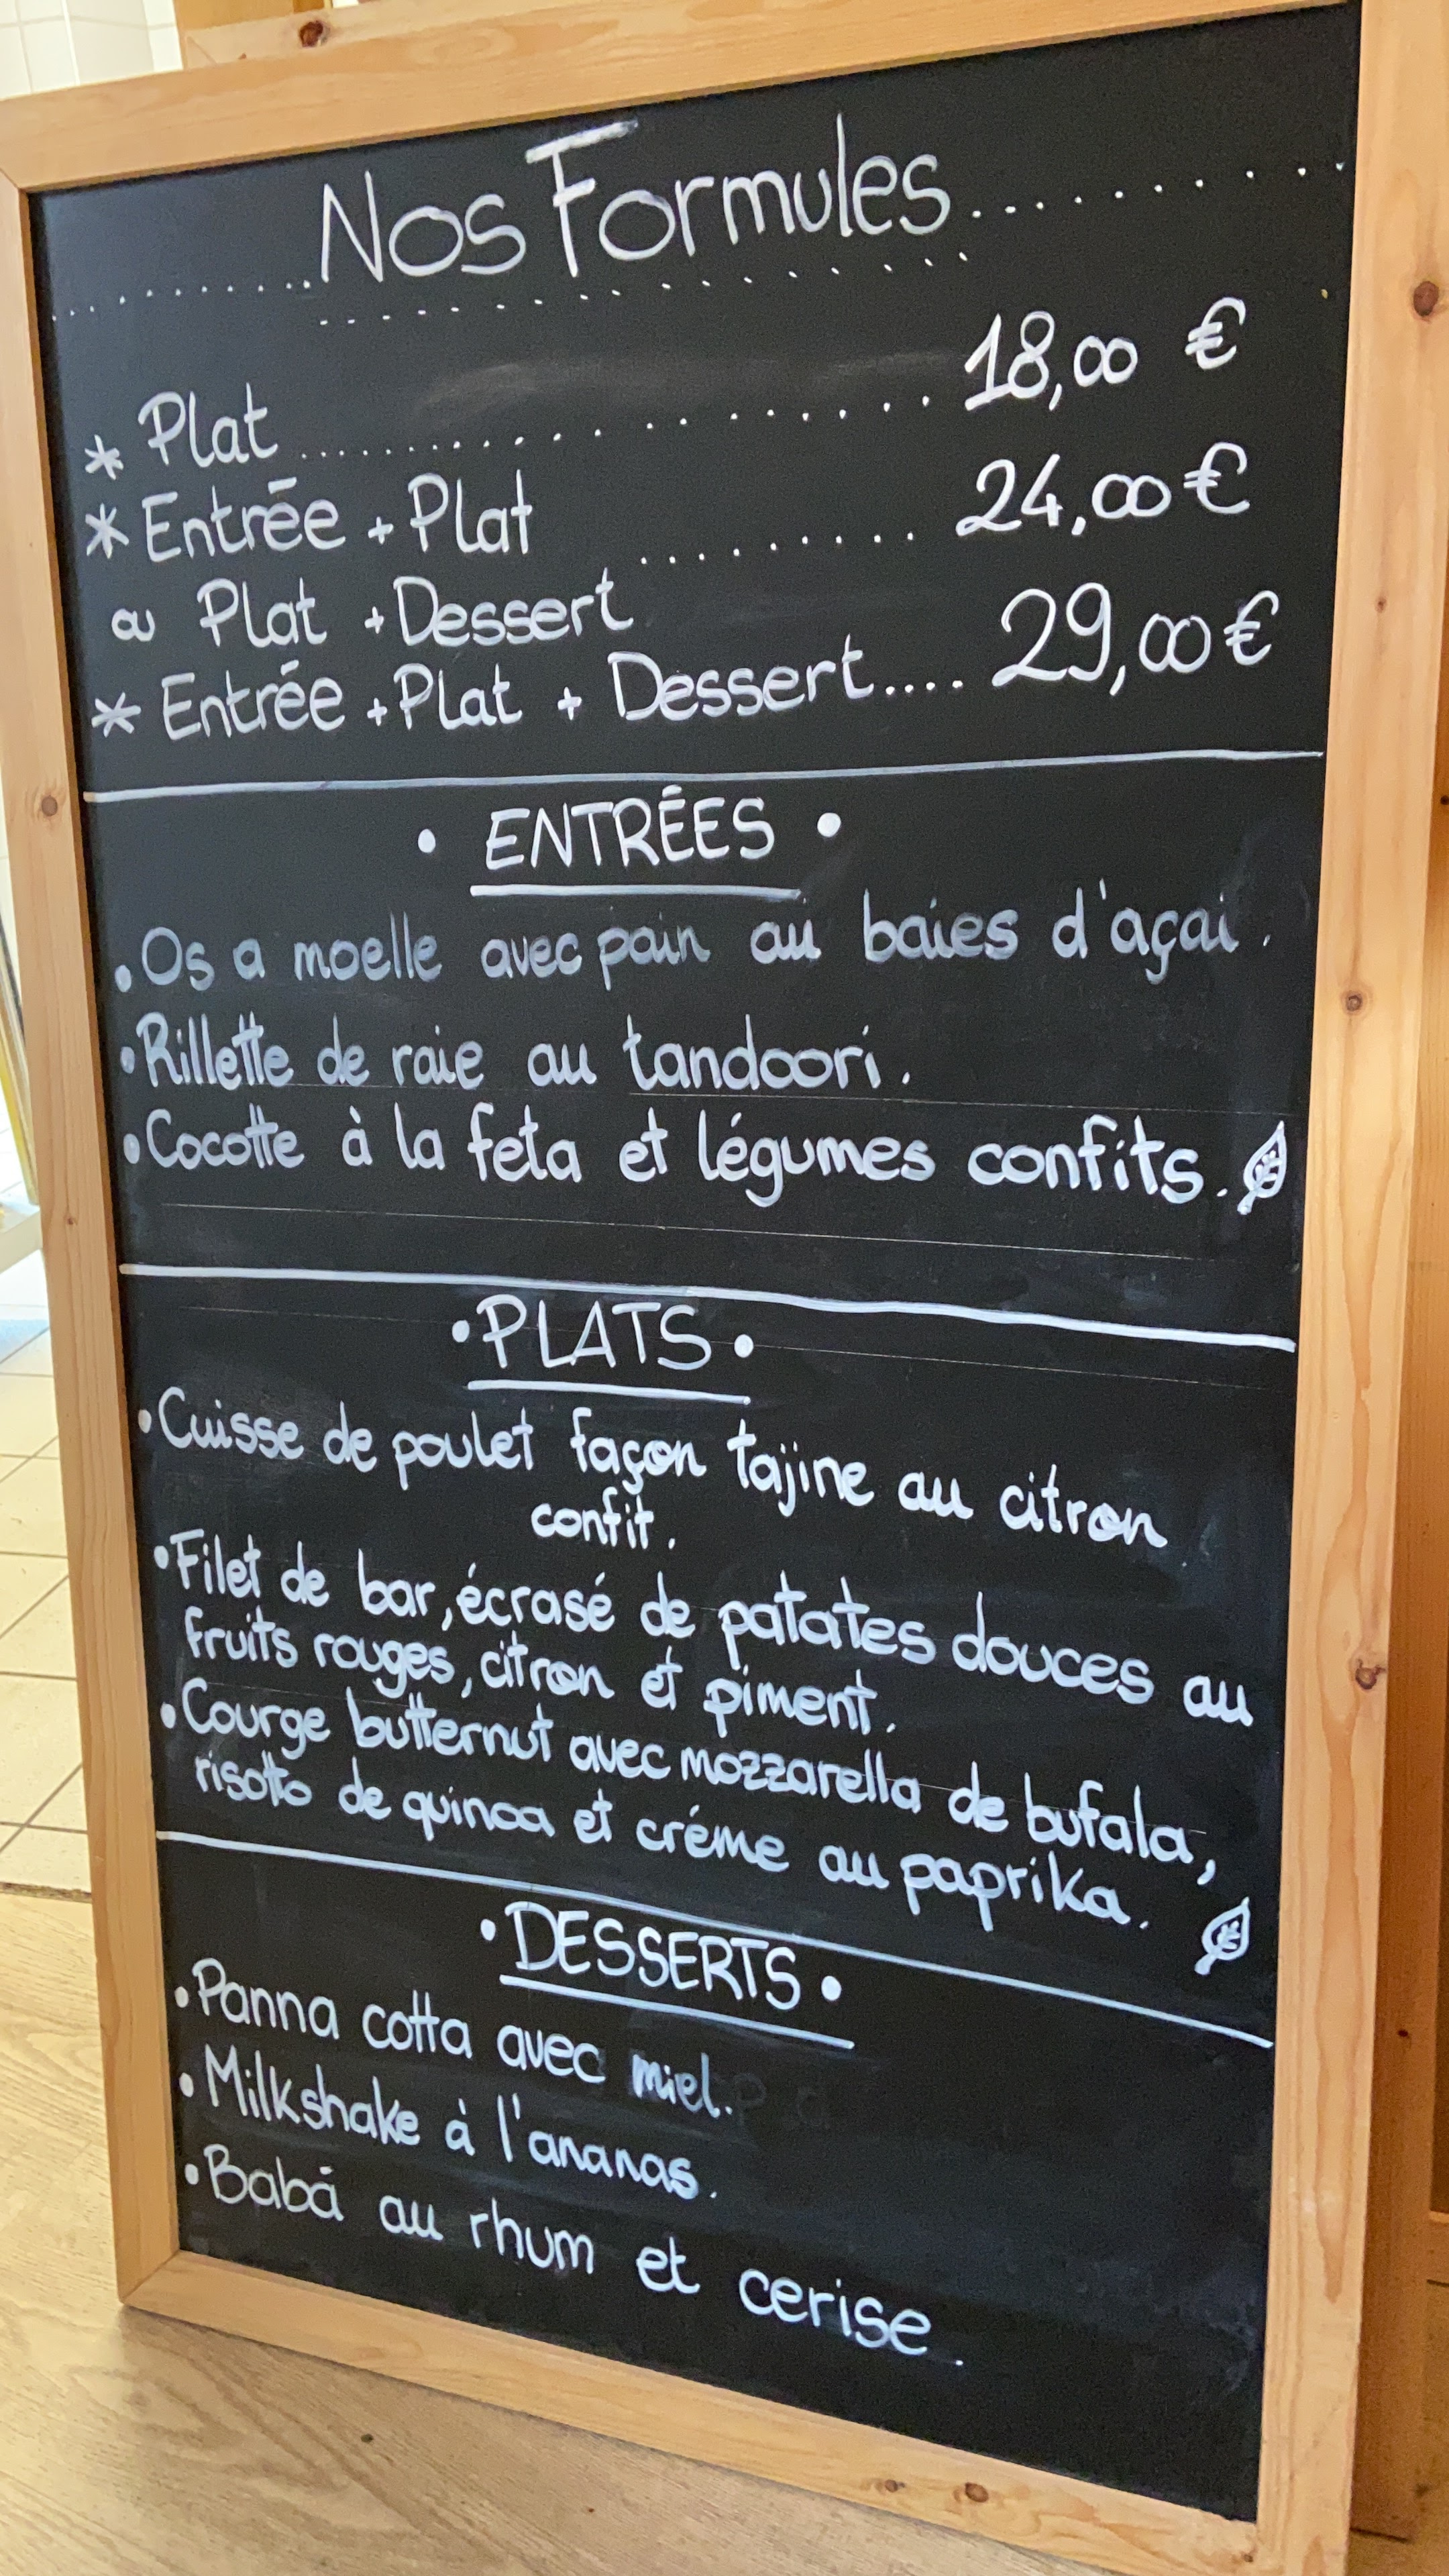 Nos Formules
* Plat .................... 18,00 €
* Entrée + Plat
ou Plat + Dessert ......... 24,00 €
* Entrée + Plat + Dessert .... 29,00 €
• ENTRÉES •
• Os a moelle avec pain au baies d'açai.
• Rillette de raie au tandoori.
• Cocotte à la feta et légumes confits.
• PLATS •
• Cuisse de poulet façon tajine au citron
confit.
• Filet de bar, écrasé de patates douces au
fruits rouges, citron et piment.
• Courge butternut avec mozzarella de bufala,
risotto de quinoa et créme au paprika.
• DESSERTS •
• Panna cotta avec miel.
• Milkshake à l'ananas.
• Babá au rhum et cerise.